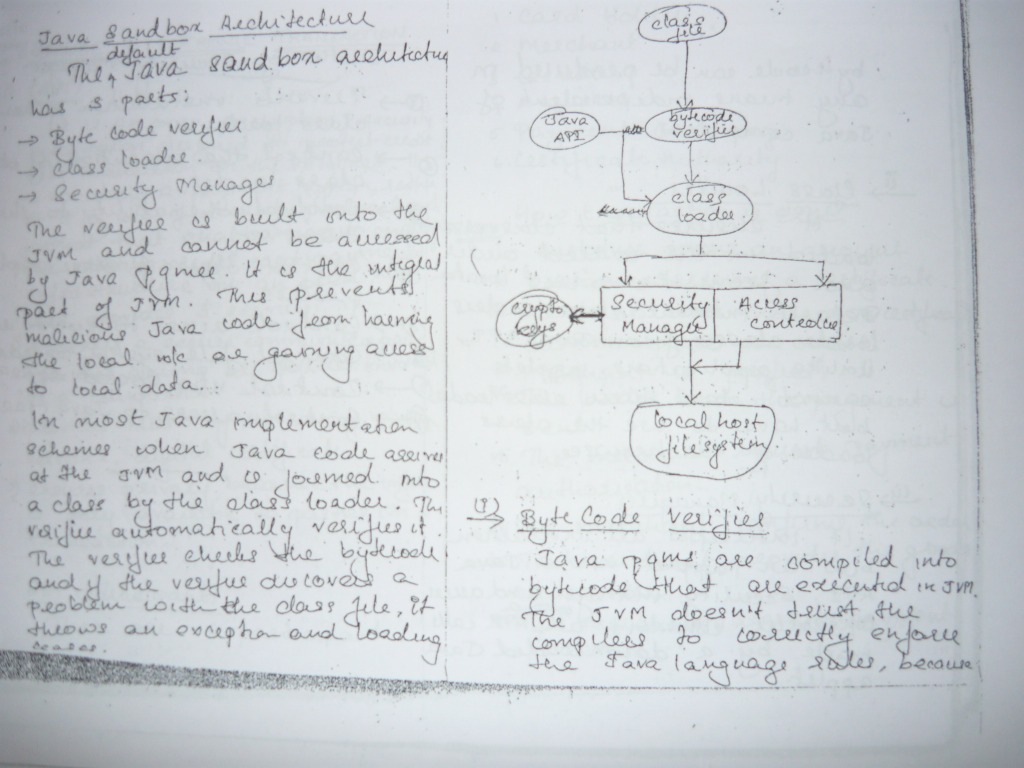 Java Sandbox Architecture
default
The Java sandbox architecture
has 3 parts:
→ Byte code verifier
→ Class loader
→ Security Manager
The verifier is built into the
JVM and cannot be accessed
by Java pgmer. It is the integral
part of JVM. This prevents
malicious Java code from harming
the local are gaining access
to local data.
In most Java implementation
schemes when Java code arrives
at the JVM and is formed into
a class by the class loader. The
verifier automatically verifies it
The verifier checks the bytecode
and if the verifier discovers a
problem with the class file, it
throws an exception and loading
ceases.
class
file
Java
API
bytecode
verifier
class
loader
crypto
keys
Security
Manager
Access
controller
local host
filesystem
(1)
→ Byte Code verifier
Java pgms are compiled into
bytecode that are executed in JVM.
The JVM doesn't trust the
compilers to correctly enforce
the Java language rules, because